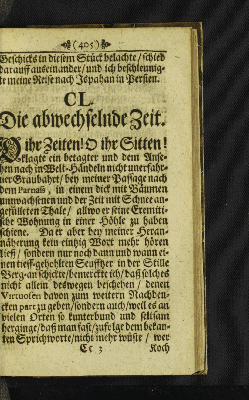 (405)
Geschicks in diesem Stück belachte / schied
darauff auseinander / und ich beschleunig-
te meine Reise nach Ispahan in Persien.
CL.
Die abwechselnde Zeit.
O ihr Zeiten! O ihr Sitten!
klagte ein betagter und dem Anse-
hen nach in Welt-Händeln nicht unerfahr-
ner Graubahrt / bey meiner Passage nach
dem Parnass, in einem dick mit Bäumen
umwachsenen und der Zeit mit Schnee an-
gefülleten Thale / allwo er seine Eremiti-
sche Wohnung in einer Höhle zu haben
schiene. Da er aber bey meiner Heran-
näherung kein eintzig Wort mehr hören
ließ / sondern nur noch dann und wann ei-
nen tieff-gehohlten Seuffzer in der Stille
Berg-an schickte / bemerckte ich / daß solches
nicht allein deswegen beschehen / denen
Virtuosen davon zum weitern Nachden-
cken part zu geben / sondern auch / weil es an
vielen Orten so kunterbund und seltsam
herginge / daß man fast / zufolge dem bekan-
ten Sprichworte / nicht mehr wüste / wer
Cc 3 Koch